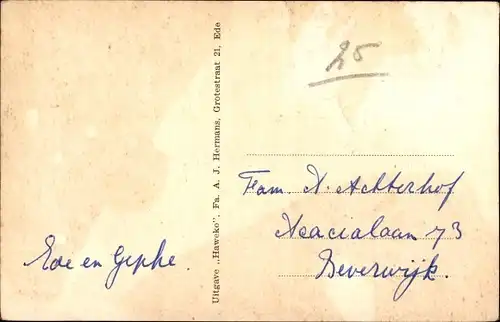 25
Uitgave „Haweko", Fa. A. J. Hermans, Grotestraat 21, Ede
Fam. N. Achterhof
Acacialaan 73
Beverwijk.
Ede en Gephe.